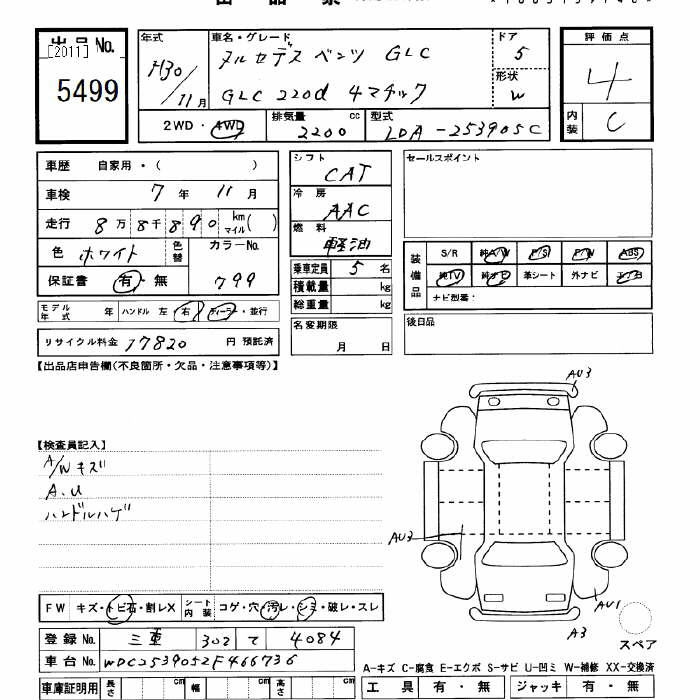 出品No.
[2011]
5499
年式
H30/11月
車名・グレード
メルセデスベンツ GLC
GLC 220d 4マチック
ドア
5
形状
W
2WD・4WD
排気量 cc
2200
型式
LDA-253905C
評価点
4
内装
C
車歴 自家用・( )
車検 7年 11月
走行 8万8千890 km マイル( )
色 ホワイト 色替
カラーNo.
799
保証書 有・無
シフト
CAT
冷房
AAC
燃料
軽油
乗車定員 5名
積載量 kg
総重量 kg
名変期限
月 日
セールスポイント
装備品
S/R 純A/W P/S P/W ABS
純TV 純ナビ 革シート 外ナビ エアB
ナビ型番:
後日品
モデル年式 年 ハンドル 左 右 ディーラー・並行
リサイクル料金 17820 円 預託済
【出品店申告欄(不良箇所・欠品・注意事項等)】
【検査員記入】
A/Wキズ
A.U
ハンドルハゲ
AU3
AU3
AU1
A3
スペア
FW キズ・トビ石・割レX シート内装 コゲ・穴・汚レ・シミ・破レ・スレ
登録No. 三重 302 て 4084
車台No. WDC2539052F466736
A-キズ C-腐食 E-エクボ S-サビ U-凹ミ W-補修 XX-交換済
車庫証明用 長さ cm 幅 cm 高さ cm
工具 有・無 ジャッキ 有・無